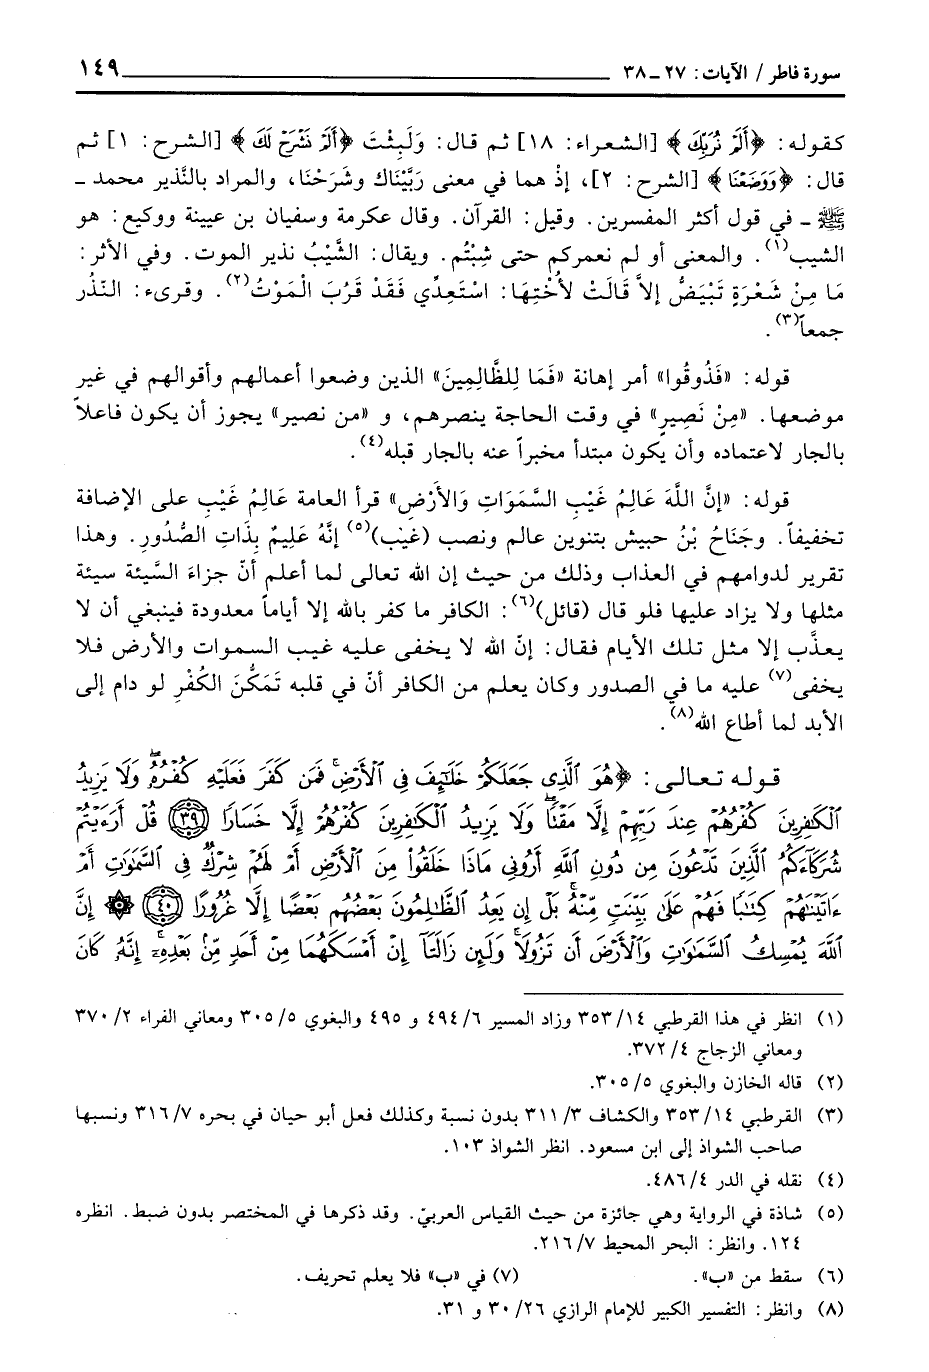 سورة فاطر / الآيات: ٢٧ ـ ٣٨ ١٤٩
كقوله: ﴿أَلَمْ نُرَبِّكَ﴾ [الشعراء: ١٨] ثم قال: وَلَبِثْتَ ﴿أَلَمْ نَشْرَحْ لَكَ﴾ [الشرح: ١] ثم
قال: ﴿وَوَضَعْنَا﴾ [الشرح: ٢]، إذْ هما في معنى رَبَّيْنَاك وشَرَحْنَا، والمراد بالنَّذير محمد ـ
ﷺ ـ في قول أكثر المفسرين. وقيل: القرآن. وقال عكرمة وسفيان بن عيينة ووكيع: هو
الشيب(١). والمعنى أو لم نعمركم حتى شِبْتُم. ويقال: الشَّيْبُ نذير الموت. وفي الأثر:
مَا مِنْ شَعْرَةٍ تَبْيَضُّ إلاَّ قَالَتْ لأُخْتِهَا: اسْتَعِدِّي فَقَدْ قَرُبَ الْمَوْتُ(٢). وقرىء: النّذر
جمعاً(٣).
قوله: «فَذُوقُوا» أمر إهانة «فَمَا لِلظَّالِمِينَ» الذين وضعوا أعمالهم وأقوالهم في غير
موضعها. «مِنْ نَصِيرٍ» في وقت الحاجة ينصرهم، و «من نصير» يجوز أن يكون فاعلاً
بالجار لاعتماده وأن يكون مبتدأ مخبراً عنه بالجار قبله(٤).
قوله: «إنَّ اللَّهَ عَالِمُ غَيْبِ السَّمَوَاتِ وَالأَرْضِ» قرأ العامة عَالِمُ غَيْبِ على الإضافة
تخفيفاً. وجَنَاحُ بْنُ حبيش بتنوين عالم ونصب (غيب)(٥) إنَّهُ عَلِيمٌ بِذَاتِ الصُّدُورِ. وهذا
تقرير لدوامهم في العذاب وذلك من حيث إن الله تعالى لما أعلم أنّ جزاءَ السَّيئة سيئة
مثلها ولا يزاد عليها فلو قال (قائل)(٦): الكافر ما كفر بالله إلا أياماً معدودة فينبغي أن لا
يعذَّب إلا مثل تلك الأيام فقال: إنّ الله لا يخفى عليه غيب السموات والأرض فلا
يخفى(٧) عليه ما في الصدور وكان يعلم من الكافر أنّ في قلبه تَمَكُّنَ الكُفْرِ لو دام إلى
الأبد لما أطاع الله(٨).
قوله تعالى: ﴿هُوَ ٱلَّذِى جَعَلَكُمْ خَلَٰٓئِفَ فِى ٱلْأَرْضِ ۚ فَمَن كَفَرَ فَعَلَيْهِ كُفْرُهُۥ ۖ وَلَا يَزِيدُ
ٱلْكَٰفِرِينَ كُفْرُهُمْ عِندَ رَبِّهِمْ إِلَّا مَقْتًا ۖ وَلَا يَزِيدُ ٱلْكَٰفِرِينَ كُفْرُهُمْ إِلَّا خَسَارًا ﴿٣٩﴾ قُلْ أَرَءَيْتُمْ
شُرَكَآءَكُمُ ٱلَّذِينَ تَدْعُونَ مِن دُونِ ٱللَّهِ أَرُونِى مَاذَا خَلَقُوا۟ مِنَ ٱلْأَرْضِ أَمْ لَهُمْ شِرْكٌ فِى ٱلسَّمَٰوَٰتِ أَمْ
ءَاتَيْنَٰهُمْ كِتَٰبًا فَهُمْ عَلَىٰ بَيِّنَتٍ مِّنْهُ ۚ بَلْ إِن يَعِدُ ٱلظَّٰلِمُونَ بَعْضُهُم بَعْضًا إِلَّا غُرُورًا ﴿٤٠﴾ ۞ إِنَّ
ٱللَّهَ يُمْسِكُ ٱلسَّمَٰوَٰتِ وَٱلْأَرْضَ أَن تَزُولَا ۚ وَلَئِن زَالَتَآ إِنْ أَمْسَكَهُمَا مِنْ أَحَدٍ مِّنۢ بَعْدِهِۦٓ ۚ إِنَّهُۥ كَانَ
(١) انظر في هذا القرطبي ١٤/ ٣٥٣ وزاد المسير ٦/ ٤٩٤ و ٤٩٥ والبغوي ٥/ ٣٠٥ ومعاني الفراء ٢/ ٣٧٠
ومعاني الزجاج ٤/ ٣٧٢.
(٢) قاله الخازن والبغوي ٥/ ٣٠٥.
(٣) القرطبي ١٤/ ٣٥٣ والكشاف ٣/ ٣١١ بدون نسبة وكذلك فعل أبو حيان في بحره ٧/ ٣١٦ ونسبها
صاحب الشواذ إلى ابن مسعود. انظر الشواذ ١٠٣.
(٤) نقله في الدر ٤/ ٤٨٦.
(٥) شاذة في الرواية وهي جائزة من حيث القياس العربيّ. وقد ذكرها في المختصر بدون ضبط. انظره
١٢٤. وانظر: البحر المحيط ٧/ ٢١٦.
(٦) سقط من «ب». (٧) في «ب» فلا يعلم تحريف.
(٨) وانظر: التفسير الكبير للإمام الرازي ٢٦/ ٣٠ و ٣١.